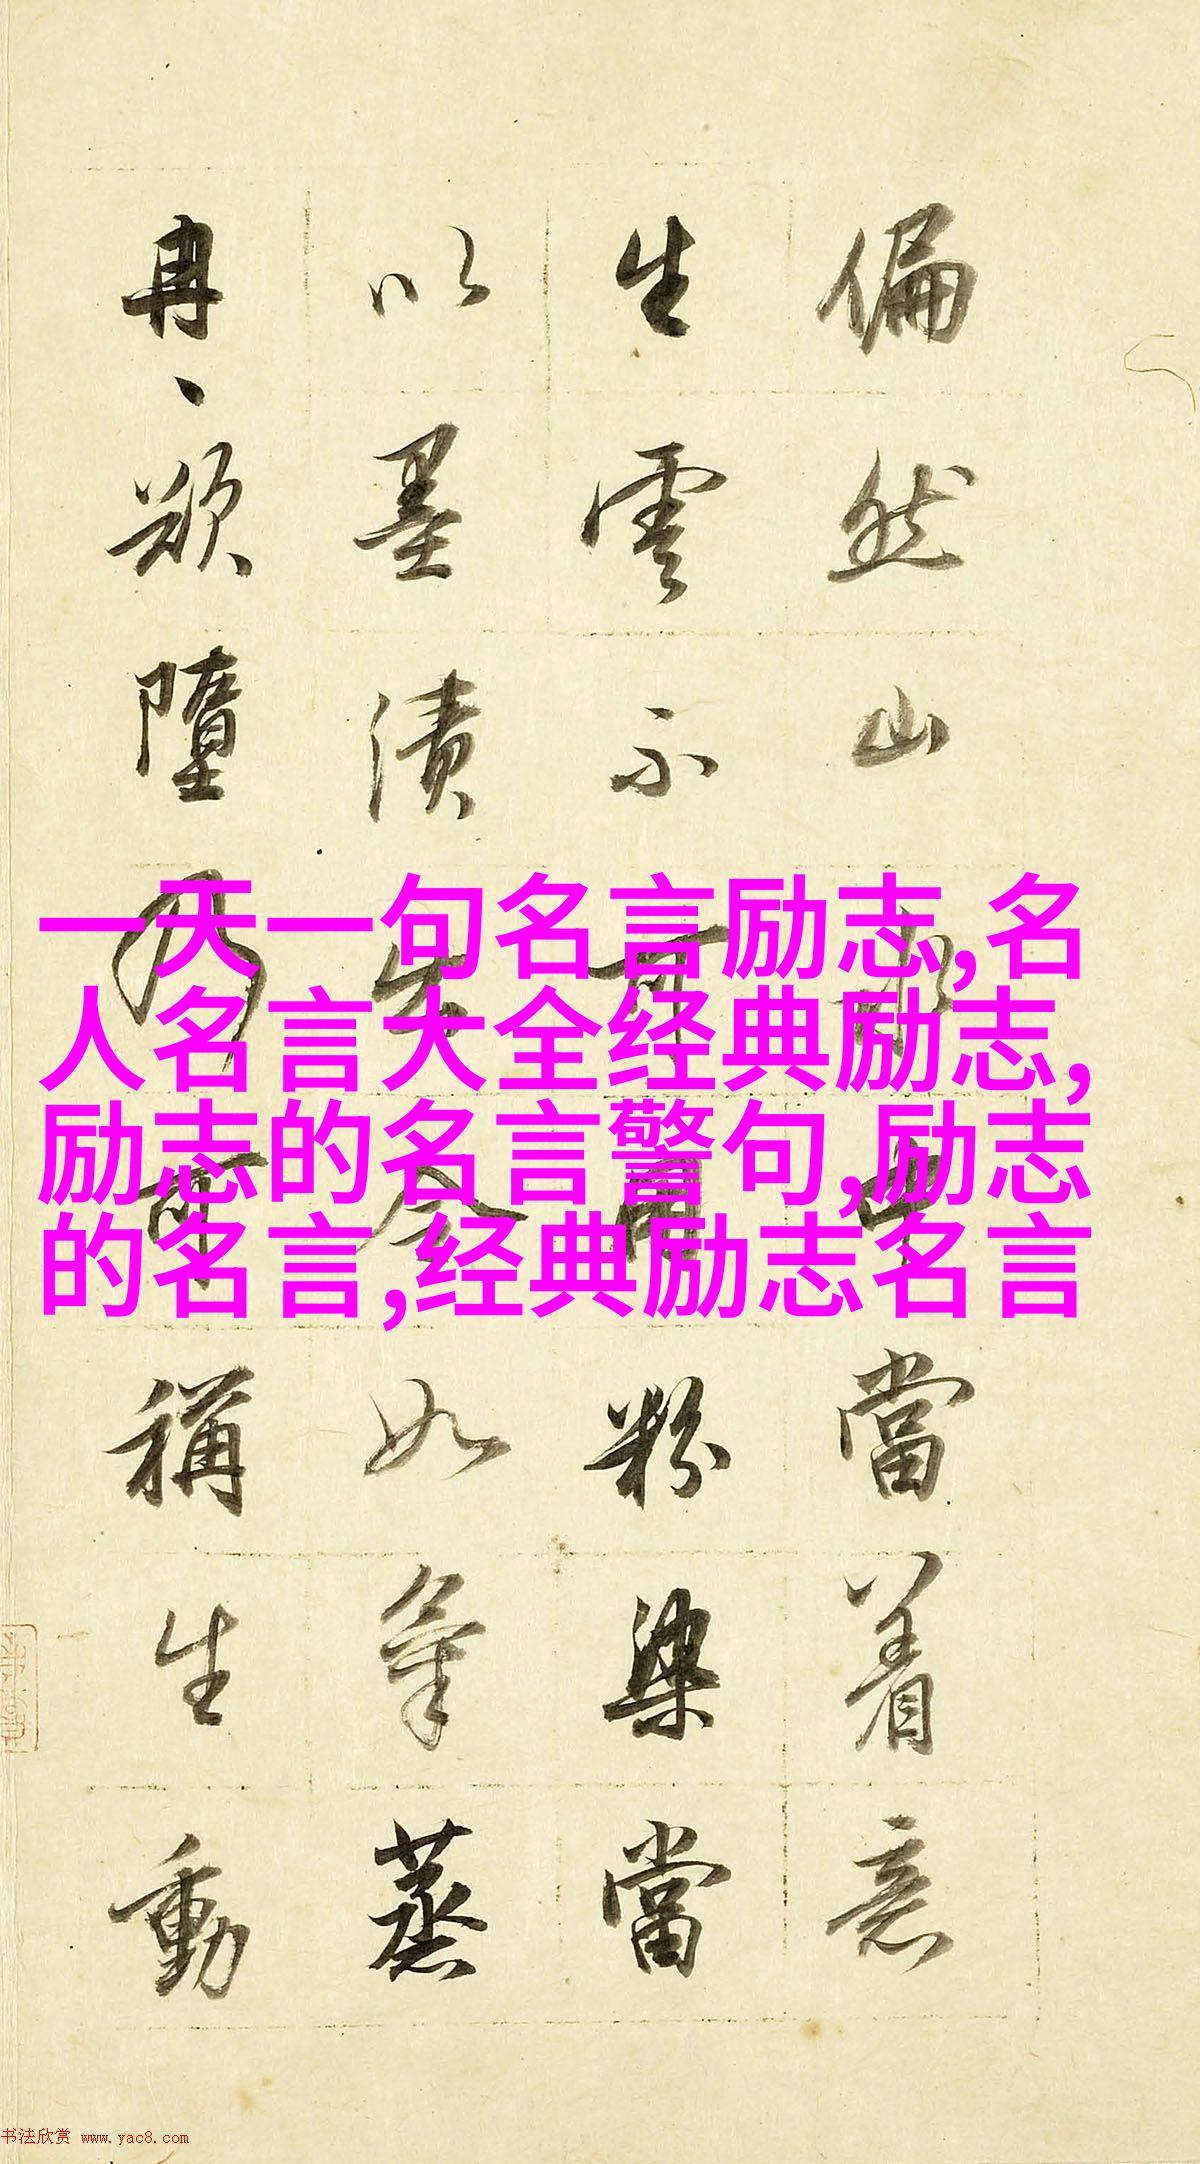 偏然山水中當着意
生雲不可用粉染當
以墨漬出令如氣蒸
冉〻欲墮乃可稱生動
一天一句名言励志,名
人名言大全经典励志,
励志的名言警句,励志
的名言,经典励志名言
书法欣赏 www.yac8.com